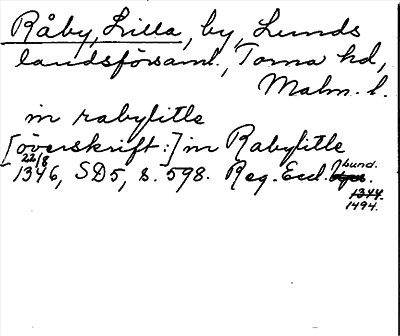 Råby, Lilla, by, Lunds
landsförsaml., Torna hd,
Malm. l.
in rabylitle
[överskrift:] in Rabylitle
22/8
1346, SD5, s. 598. Reg. Eccl. Lund.
1344.
1494.